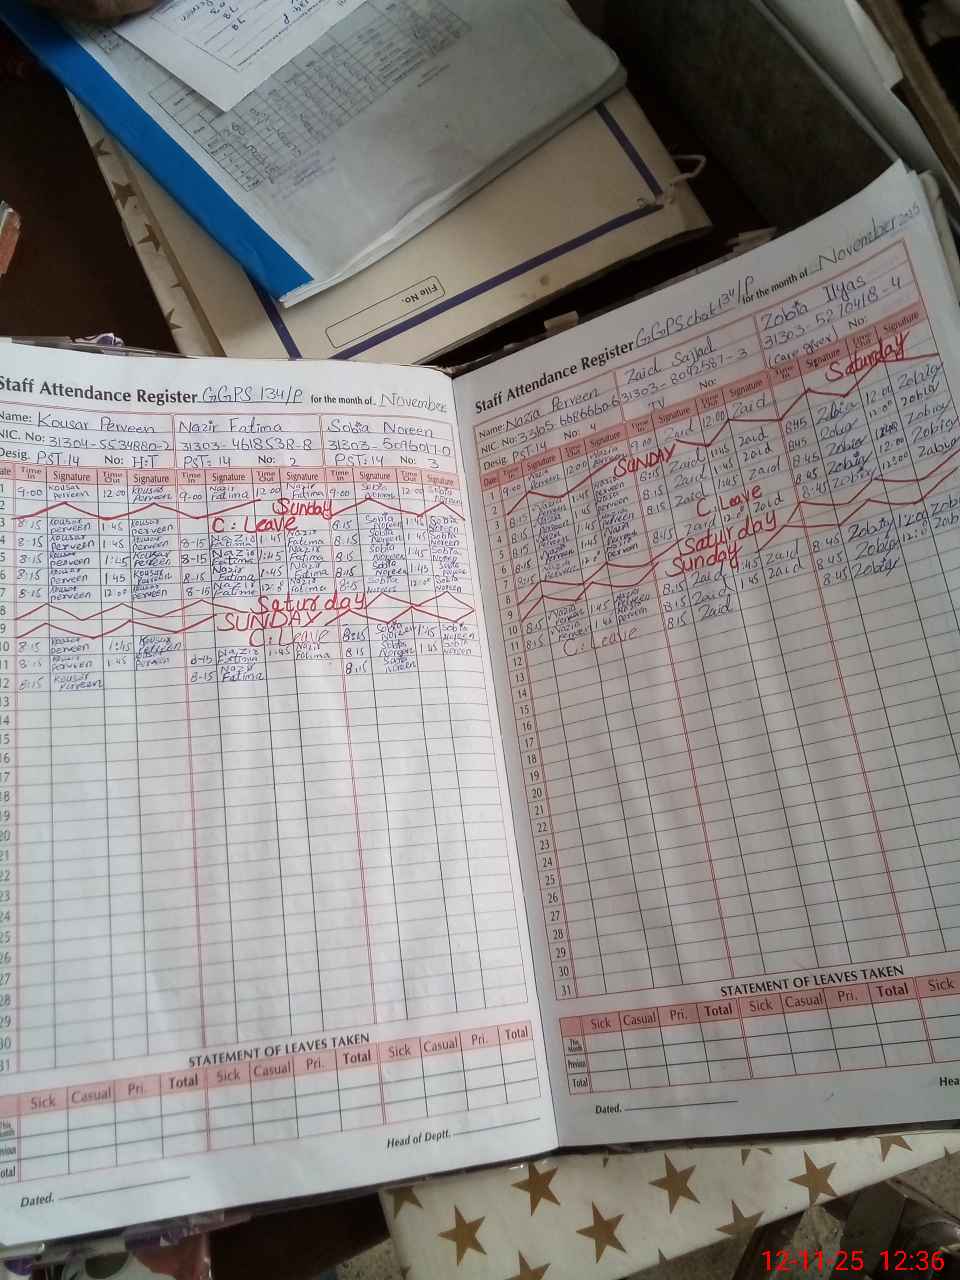 File No.
Staff Attendance Register GGPS 134/P for the month of November
Name: Kousar Perveen Nazir Fatima Sobia Noreen
NIC. No: 31304-5534880-2 31303-4618538-8 31303-5096011-0
Desig. PST:14 No: H:T PST:14 No: 2 PST:14 No: 3
Date Time In Signature Time Out Signature Time In Signature Time Out Signature Time In Signature Time Out Signature
1 9:00 Kousar Perveen 12:00 Kousar Perveen 9:00 Nazir Fatima 12:00 Nazir Fatima 9:00 12:00 Sobia Noreen
2 Sunday
3 8:15 Kousar Perveen 1:45 Kousar Perveen C: Leave 8:15 Sobia Noreen 1:45 Sobia Noreen
4 8:15 Kousar Perveen 1:45 Kousar Perveen 8-15 Nazir Fatima 1:45 Nazir Fatima 8:15 Sobia Noreen 1:45 Sobia Noreen
5 8:15 Kousar Perveen 1:45 Kousar Perveen 8-15 Nazir Fatima 1:45 Nazir Fatima 8:15 Sobia Noreen 1:45 Sobia Noreen
6 8:15 Kousar Perveen 1:45 Kousar Perveen 8:15 Nazir Fatima 1:45 Nazir Fatima 8:15 Sobia Noreen 1:45 Sobia Noreen
7 8:15 Kousar Perveen 12:00 Kousar Perveen 8-15 Nazir Fatima 12:0 Nazir Fatima 8:15 Sobia Noreen 12:00 Sobia Noreen
8 Saturday
9 SUNDAY
10 8:15 Kousar Perveen 1:45 Kousar Perveen C: Leave 8:15 Sobia Noreen 1:45 Sobia Noreen
11 8:15 Kousar Perveen 1:45 Kousar Perveen 8-15 Nazir Fatima 1:45 Nazir Fatima 8:15 Sobia Noreen 1:45 Sobia Noreen
12 8:15 Kousar Perveen 8-15 Nazir Fatima 8:15 Sobia Noreen
13
14
15
16
17
18
19
20
21
22
23
24
25
26
27
28
29
30
31
STATEMENT OF LEAVES TAKEN
Sick Casual Pri. Total Sick Casual Pri. Total Sick Casual Pri. Total
This Month
Previous
Total
Dated. Head of Deptt.
Staff Attendance Register GGPS chak 134/P for the month of November 2025
Name: Nazia Perveen Zaid Sajjad Zobia Ilyas
NIC. No: 31303-8042587-3 31303-5270418-4
Desig. PST:14 No: 4 TV No: (care giver) No:
Date Time In Signature Time Out Signature Time In Signature Time Out Signature Time In Signature Time Out Signature
1 9:00 Nazia Perveen 12:00 Nazia Perveen 9:00 Zaid 12:00 Zaid Saturday
2 SUNDAY
3 8:15 Nazia Perveen 1:45 Nazia Perveen 8:15 Zaid 1:45 Zaid 8:45 Zobia 12:00 Zobia
4 8:15 Nazia Perveen 1:45 Nazia Perveen 8:15 Zaid 1:45 Zaid 8:45 Zobia 12:0 Zobia
5 8:15 Nazia Perveen 1:45 Nazia Perveen 8:15 Zaid 1:45 Zaid 8:45 Zobia 12:00 Zobia
6 8:15 Nazia Perveen 1:45 Nazia Perveen C: Leave 8:45 Zobia 12:00 Zobia
7 8:15 Nazia Perveen 12:0 Nazia Perveen 8:45 Zaid 12:0 Zaid 8:45 Zobia 12:00 Zobia
8 Saturday
9 Sunday
10 8:15 Nazia Perveen 1:45 Nazia Perveen 8:15 Zaid 1:45 Zaid 8:45 Zobia 12:00 Zobia
11 8:15 Nazia Perveen 1:45 Nazia Perveen 8:15 Zaid 1:45 Zaid 8:45 Zobia 12:0 Zobia
12 C: Leave 8:15 Zaid 8:45 Zobia
13
14
15
16
17
18
19
20
21
22
23
24
25
26
27
28
29
30
31
STATEMENT OF LEAVES TAKEN
Sick Casual Pri. Total Sick Casual Pri. Total Sick
This Month
Previous
Total
Dated. Hea
12-11-25 12:36